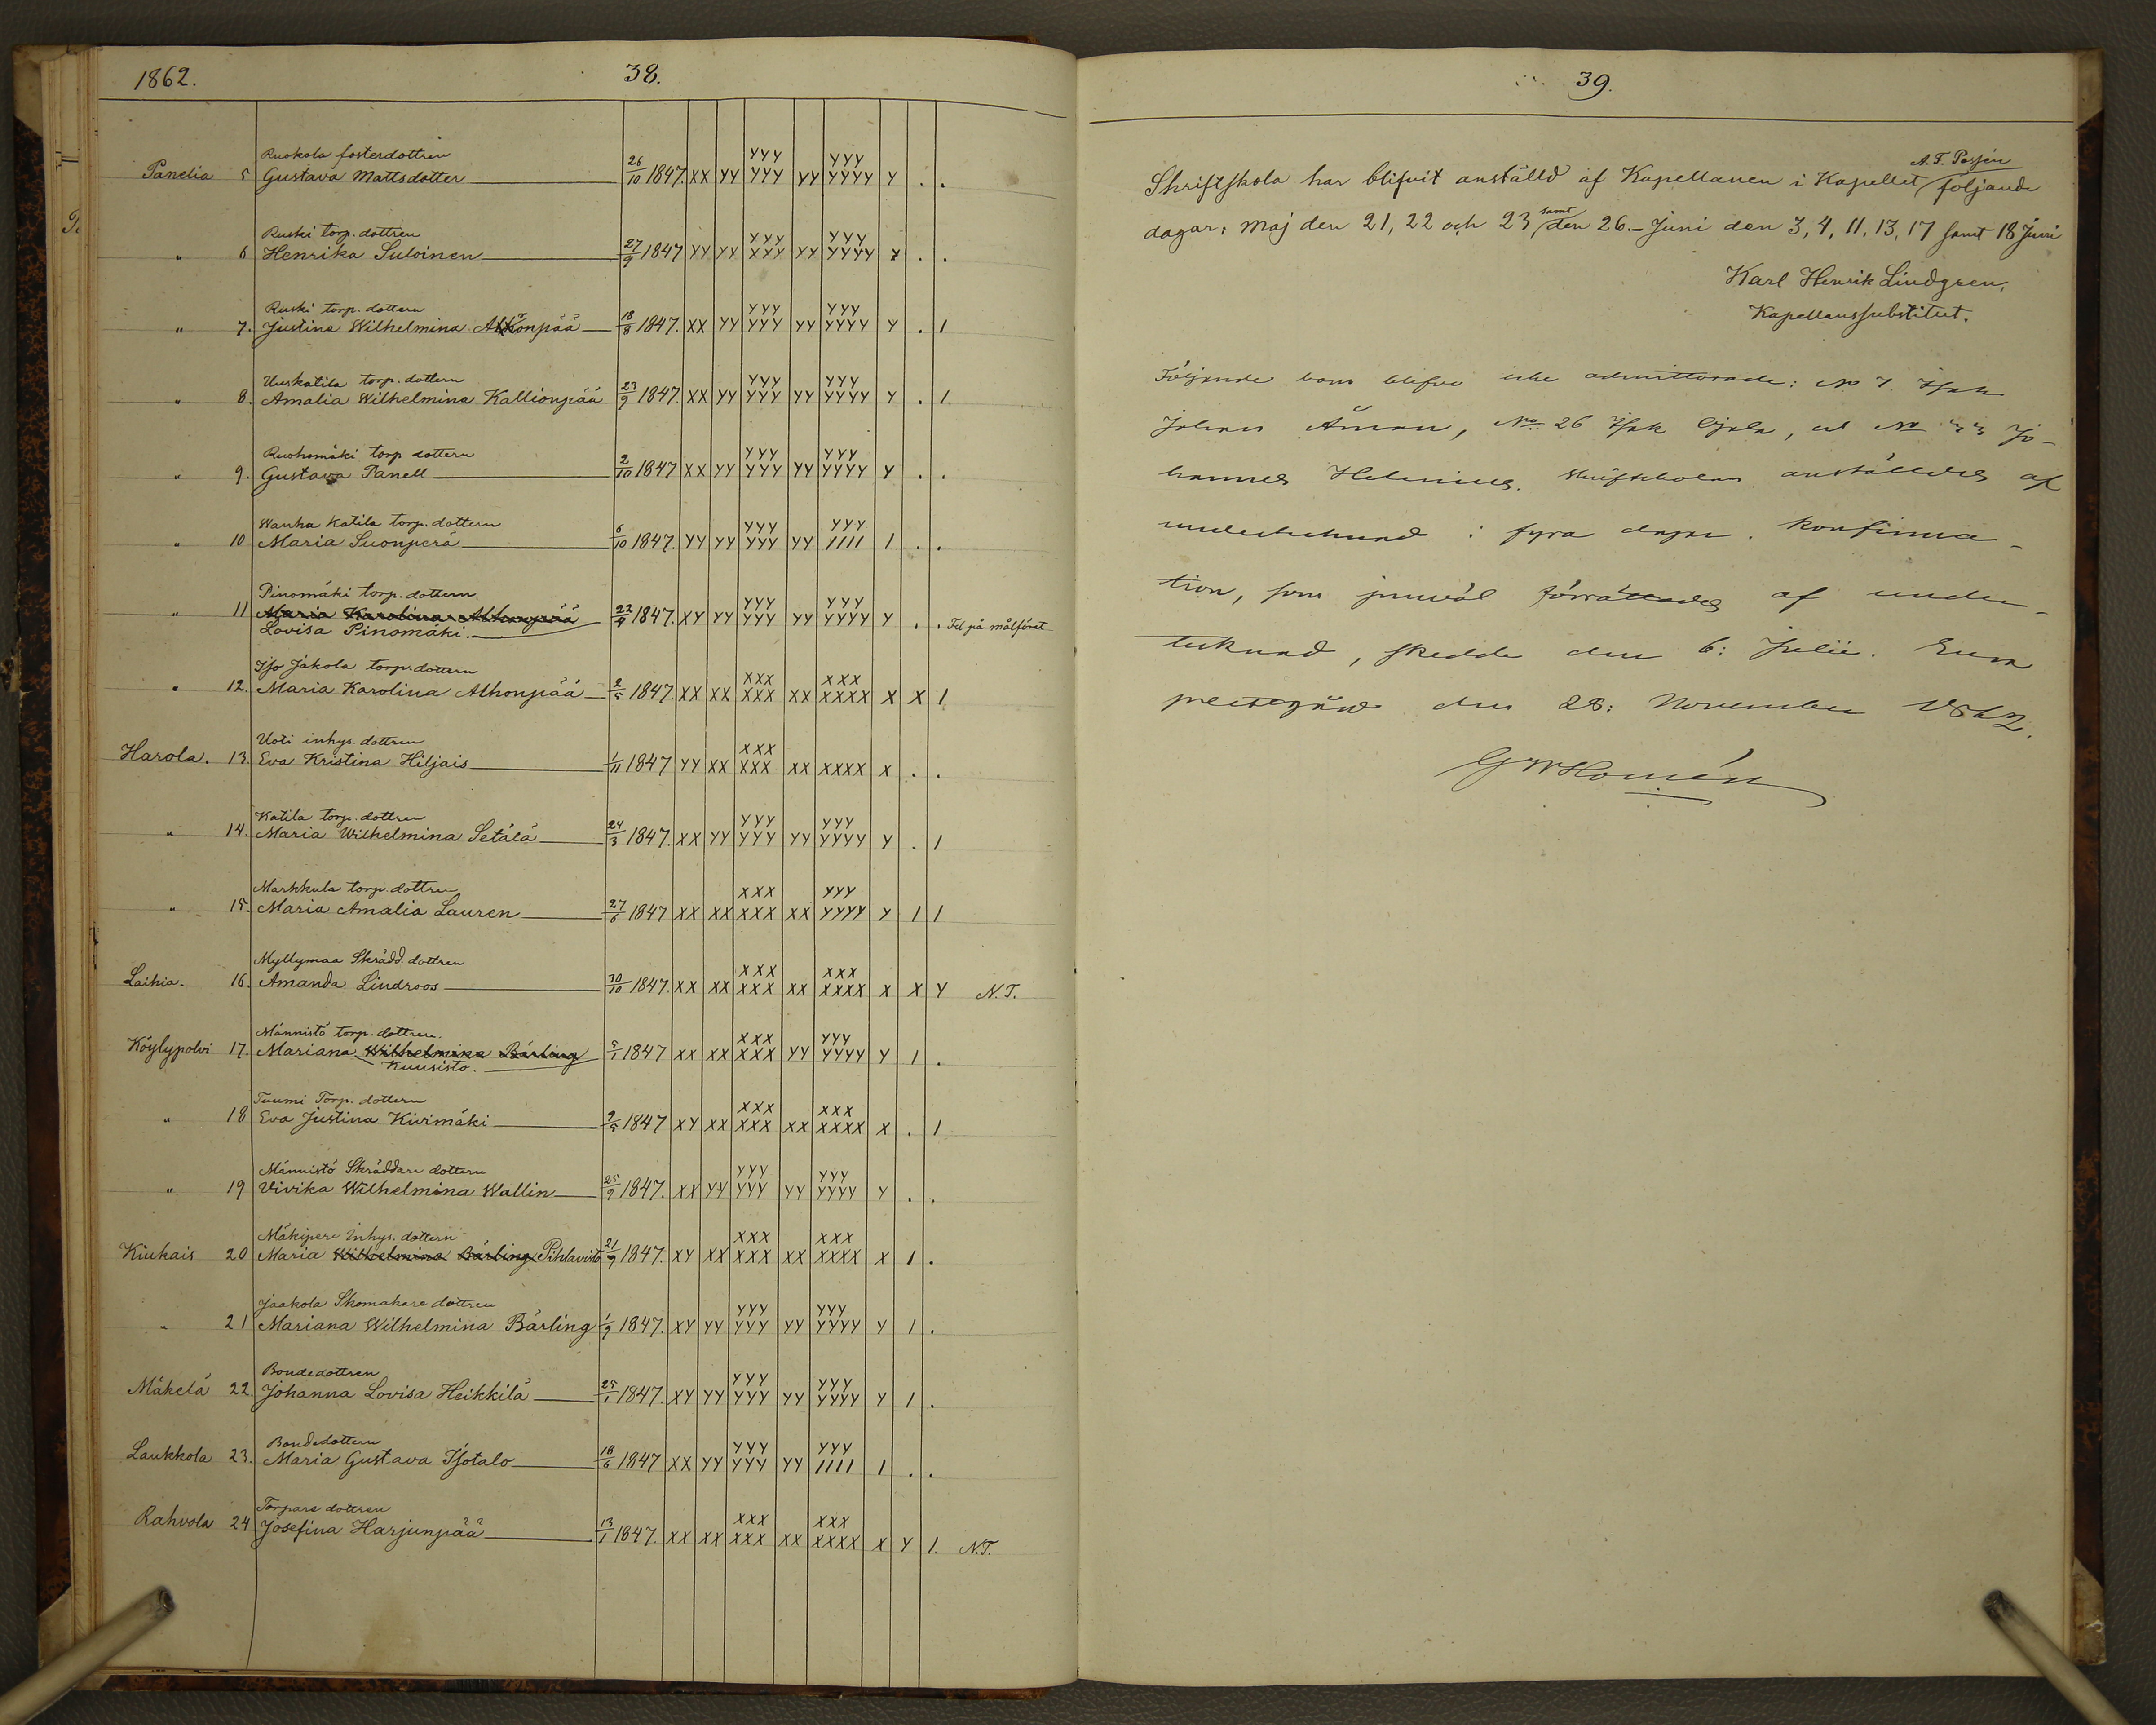 1862. 38.
Ruokola fosterdottren
Panelia 5 Gustava Mattsdotter 26/10 1847. XX YY YYY YYY YY YYY YYYY Y . .
Ruski torp. dottren
" 6 Henrika Suloinen 27/9 1847 YY YY YYY XYY YY YYY YYYY Y . .
Ruski torp. dottern
" 7. Justina Wilhelmina Alhonpää 18/8 1847. XX YY YYY YYY YY YYY YYYY Y . 1
Uuskatila torp. dottern
" 8. Amalia Wilhelmina Kallionpää 23/9 1847. XX YY YYY YYY YY YYY YYYY Y . 1
Ruohomäki torp dottern
" 9. Gustava Panell 2/10 1847 XX YY YYY YYY YY YYY YYYY Y . .
Wanha Katila torp. dottern
" 10 Maria Suonperä 6/10 1847. YY YY YYY YYY YY YYY 1111 1 . .
Pinomäki torp. dottern
" 11 Maria Karolina Alhonpää 22/9 1847. XY YY YYY YYY YY YYY YYYY Y . . Fel på målföret
Lovisa Pinomäki.
Iso Jakola torp. dottern
" 12. Maria Karolina Alhonpää 2/5 1847. XX XX XXX XXX XX XXX XXXX X X 1
Uoti inhys. dottren
Harola. 13. Eva Kristina Hiljais 1/11 1847 YY XX XXX XXX XX XXXX X . .
Katila torp. dottren
" 14. Maria Wilhelmina Setälä 24/3 1847. XX YY YYY YYY YY YYY YYYY Y . 1
Markkula torp. dottren
" 15. Maria Amalia Lauren 27/6 1847 XX XX XXX XXX XX YYY YYYY Y 1 1
Myllymaa Skrädd. dottren
Laihia. 16. Amanda Lindroos 30/10 1847. XX XX XXX XXX XX XXX XXXX X X Y N.T.
Männistö torp. dottren.
Köylypolvi 17. Mariana Wilhelmina Bärling 5/1 1847 XX XX XXX XXX YY YYY YYYY Y 1 .
Kuusisto.
Tuumi Torp. dottern
" 18 Eva Justina Kivimäki 2/5 1847 XY XX XXX XXX XX XXX XXXX X . 1
Männistö Skräddare dottern
" 19 Vivika Wilhelmina Wallin 25/9 1847. XX YY YYY YYY YY YYY YYYY Y . .
Mäkipere Inhys. dottern
Kiukais 20 Maria Wilhelmina Bärling Pihlavisto 21/9 1847. XY XX XXX XXX XX XXX XXXX X 1 .
Jaakola Skomakare dottren
" 21 Mariana Wilhelmina Bärling 1/9 1847. XY YY YYY YYY YY YYY YYYY Y 1 .
Bondedottren
Mäkelä 22. Johanna Lovisa Heikkilä 25/1 1847. XY YY YYY YYY YY YYY YYYY Y 1 .
Bondedottern
Laukkola 23. Maria Gustava Isotalo 18/6 1847 XX YY YYY YYY YY YYY 1111 1 . .
Torpare dottren
Rahvola 24 Josefina Harjunpää 13/1 1847. XX XX XXX XXX XX XXX XXXX X Y 1. N.T.
39.
A. F.
Skriftskola har blifvit anställd af Kapellanen i Kapellet följande
dagar: Maj den 21, 22 och 23 samt den 26. – Juni den 3, 4, 11, 13, 17 samt 18 Juni
Karl Henrik Lindgren,
Kapellanssubstitut.
Följande barn blefvo icke admitterade: No 7 Isak
Johan Åman, No 26 Isak Ojala, No Jo-
hannes Helenius. Skriftskolan anställdes af
undertecknad i fyra dagar. Konfirma-
tion, som jemväl förrättades af under-
tecknad, skedde den 6: Julii. Eura
prestgård den 28: November 1862.
GWHomén